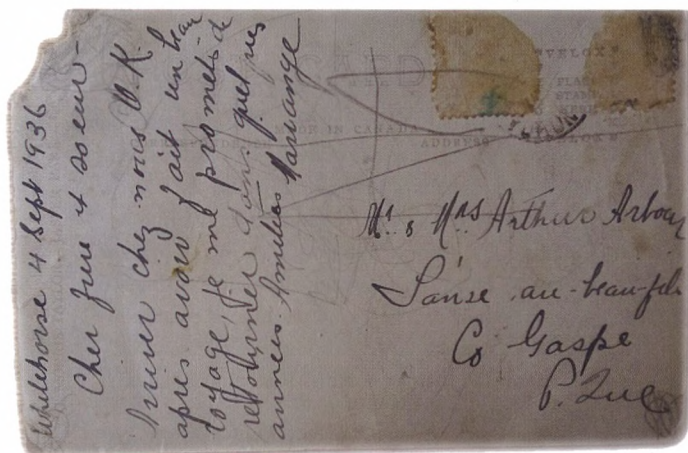 Whitehorse 4 Sept 1936
Cher frere & soeur -
Arriver chez nous O.K.
apres avoir fait un beau
voyage, Je me promets de
retourner dans quelques
années. Amitiés Mariange
CARD
"VELOX"
PLACE
STAMP
HERE
IN CANADA
ADDRESS
Mr. & Mrs Arthur Arbour
L'anse-au-beau-fils
Co Gaspe
P. Que